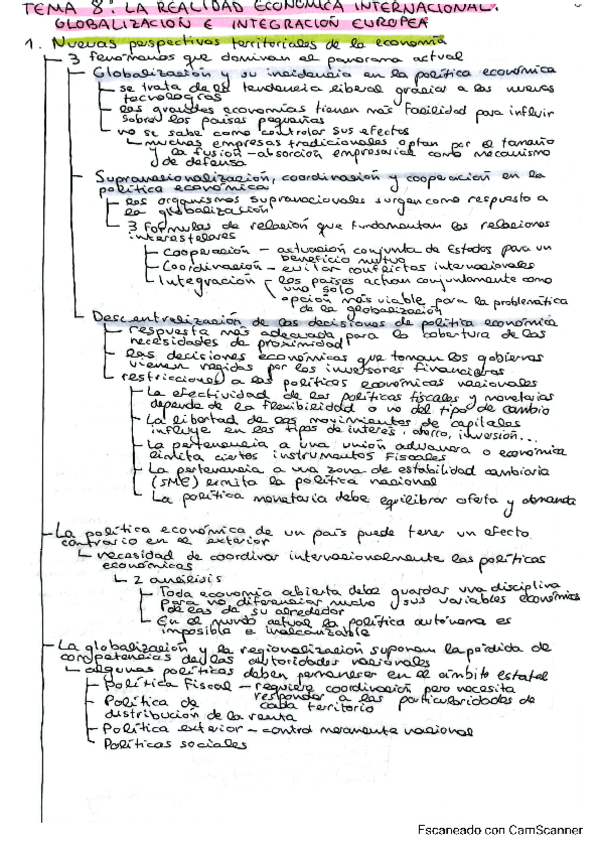 TEMA 8: LA REALIDAD ECONÓMICA INTERNACIONAL.
GLOBALIZACIÓN E INTEGRACIÓN EUROPEA
1. Nuevas perspectivas territoriales de la economía
3 fenómenos que dominan el panorama actual
Globalización y su incidencia en la política económica
se trata de la tendencia liberal gracias a las nuevas
tecnologías
las grandes economías tienen más facilidad para influir
sobre los países pequeños
no se sabe como controlar sus efectos
muchas empresas tradicionales optan por el tamaño
y la fusión-absorción empresarial como mecanismo
de defensa
Supranacionalización, coordinación y cooperación en la
política económica
los organismos supranacionales surgen como respuesta a
la globalización
3 formulas de relación que fundamentan las relaciones
interestelares
Cooperación - actuación conjunta de Estados para un
beneficio mutuo
Coordinación - evitar conflictos internacionales
Integración los países actuan conjuntamente como
uno solo
opción más viable para la problemática
de la globalización
Descentralización de las decisiones de política económica
respuesta más adecuada para la cobertura de las
necesidades de proximidad
las decisiones económicas que toman los gobiernos
vienen regidas por los inversores financieros
restricciones a las políticas económicas nacionales
La efectividad de las políticas fiscales y monetarias
depende de la flexibilidad o no del tipo de cambio
La libertad de los movimientos de capitales
influye en los tipos de interés, ahorro, inversión...
La pertenencia a una unión aduanera o económica
limita ciertos instrumentos fiscales
La pertenencia a una zona de estabilidad cambiaria
(SME) limita la política nacional
La política monetaria debe equilibrar oferta y demanda
La política económica de un país puede tener un efecto
contrario en el exterior
necesidad de coordinar internacionalmente las políticas
económicas
2 análisis
Toda economía abierta debe guardar una disciplina
para no diferenciar mucho sus variables económicas
de las de su alrededor
En el mundo actual la política autónoma es
imposible e inalcanzable
La globalización y la regionalización suponen la pérdida de
competencias de las autoridades nacionales
algunas políticas deben permanecer en el ámbito estatal
Política Fiscal - requiere coordinación pero necesita
responder a las particularidades de
cada territorio
Política de
distribución de la renta
Política exterior - control meramente nacional
Políticas sociales
Escaneado con CamScanner